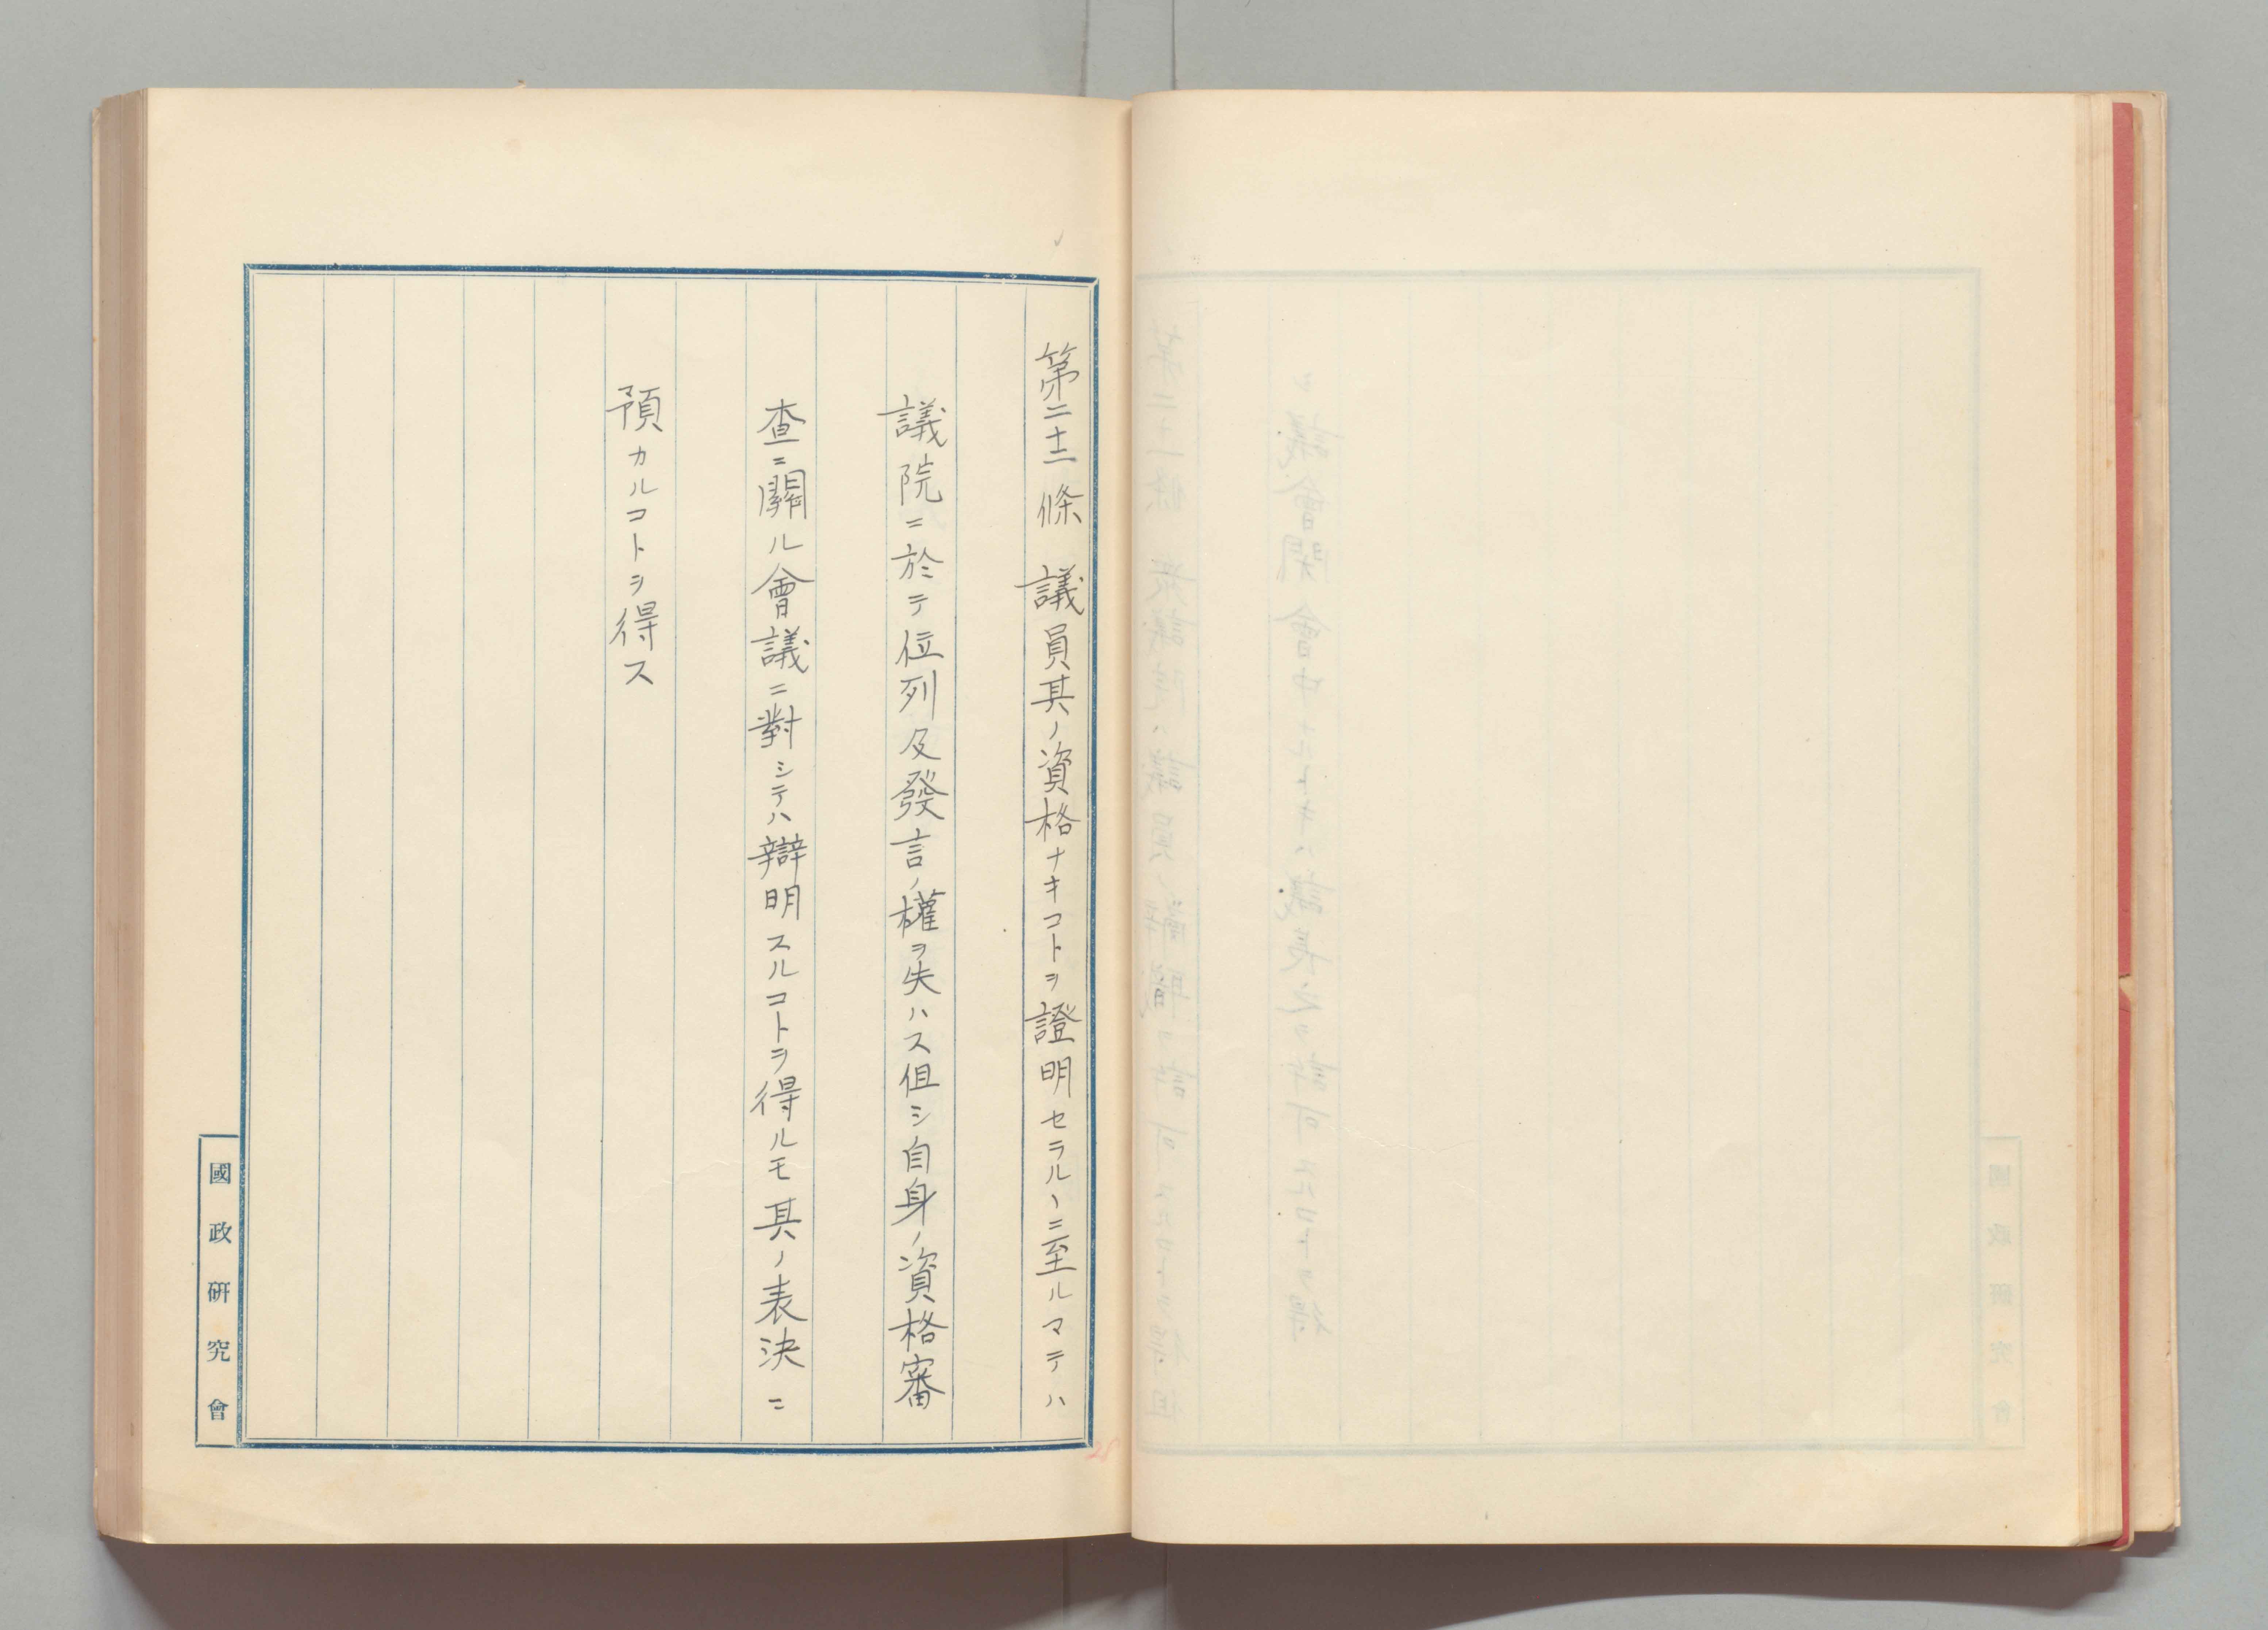 第二十二條 議員其ノ資格ナキコトヲ證明セラルヽニ至ルマテハ
議院ニ於テ位列及發言ノ權ヲ失ハス但シ自身ノ資格審
査ニ關ル會議ニ對シテハ辯明スルコトヲ得ルモ其ノ表決ニ
預カルコトヲ得ス
國政研究會